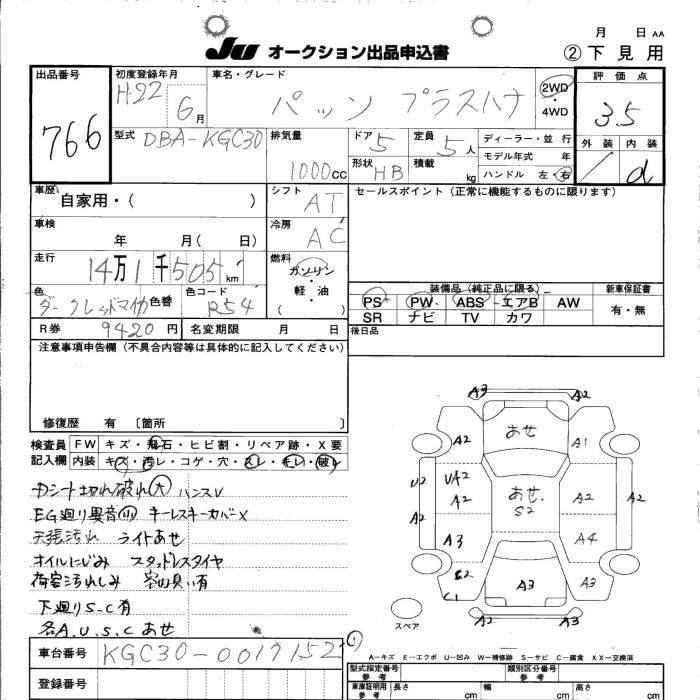 月 日 AA
JU オークション出品申込書 ②下見用
出品番号 初度登録年月 車名・グレード 評価点
766 H.22 6月 パッソ プラスハナ 2WD・4WD 3.5
型式 DBA-KGC30 排気量 1000cc ドア 5 定員 5人 ディーラー・並行 外装 内装
モデル年式 年
形状 HB 積載 kg ハンドル 左・右 d
車歴 自家用・( ) シフト AT セールスポイント(正常に機能するものに限ります)
車検 年 月( 日) 冷房 AC
走行 14万1千505km 燃料 ガソリン・軽油 ( )
装備品(純正品に限る) 新車保証書
色 ダークレッドマイカ 色替 色コード R54 PS PW ABS エアB AW 有・無
SR ナビ TV カワ
R券 9420円 名変期限 月 日 後日品
注意事項申告欄(不具合内容等は具体的に記入してください)
修復歴 有 〔箇所 〕
検査員記入欄 FW キズ・飛石・ヒビ割・リペア跡・X要
内装 キズ・汚レ・コゲ・穴・スレ・キレ・破レ
Dシート切れ破れ(大) ハンスレ
EG廻り異音(小) キーレスキーカバーX
天張汚れ ライトあせ
オイルにじみ スタッドレスタイヤ
荷室汚れしみ 室内臭い有
下廻りS.C有
各A.U.S.Cあせ
A3 A2
A2 あせ A1
U2 UA2 あせ. A2 A2
A2 A2 S2
A3 A4
S2 A3
C1
スペア A2 A3
A-キズ E-エクボ U-凹み W-補修跡 S-サビ C-腐食 XX-交換済
車台番号 KGC30-0017152 型式指定番号 参考 類別区分番号 参考
登録番号 車庫証明用 参考 長さ cm 幅 cm 高さ cm